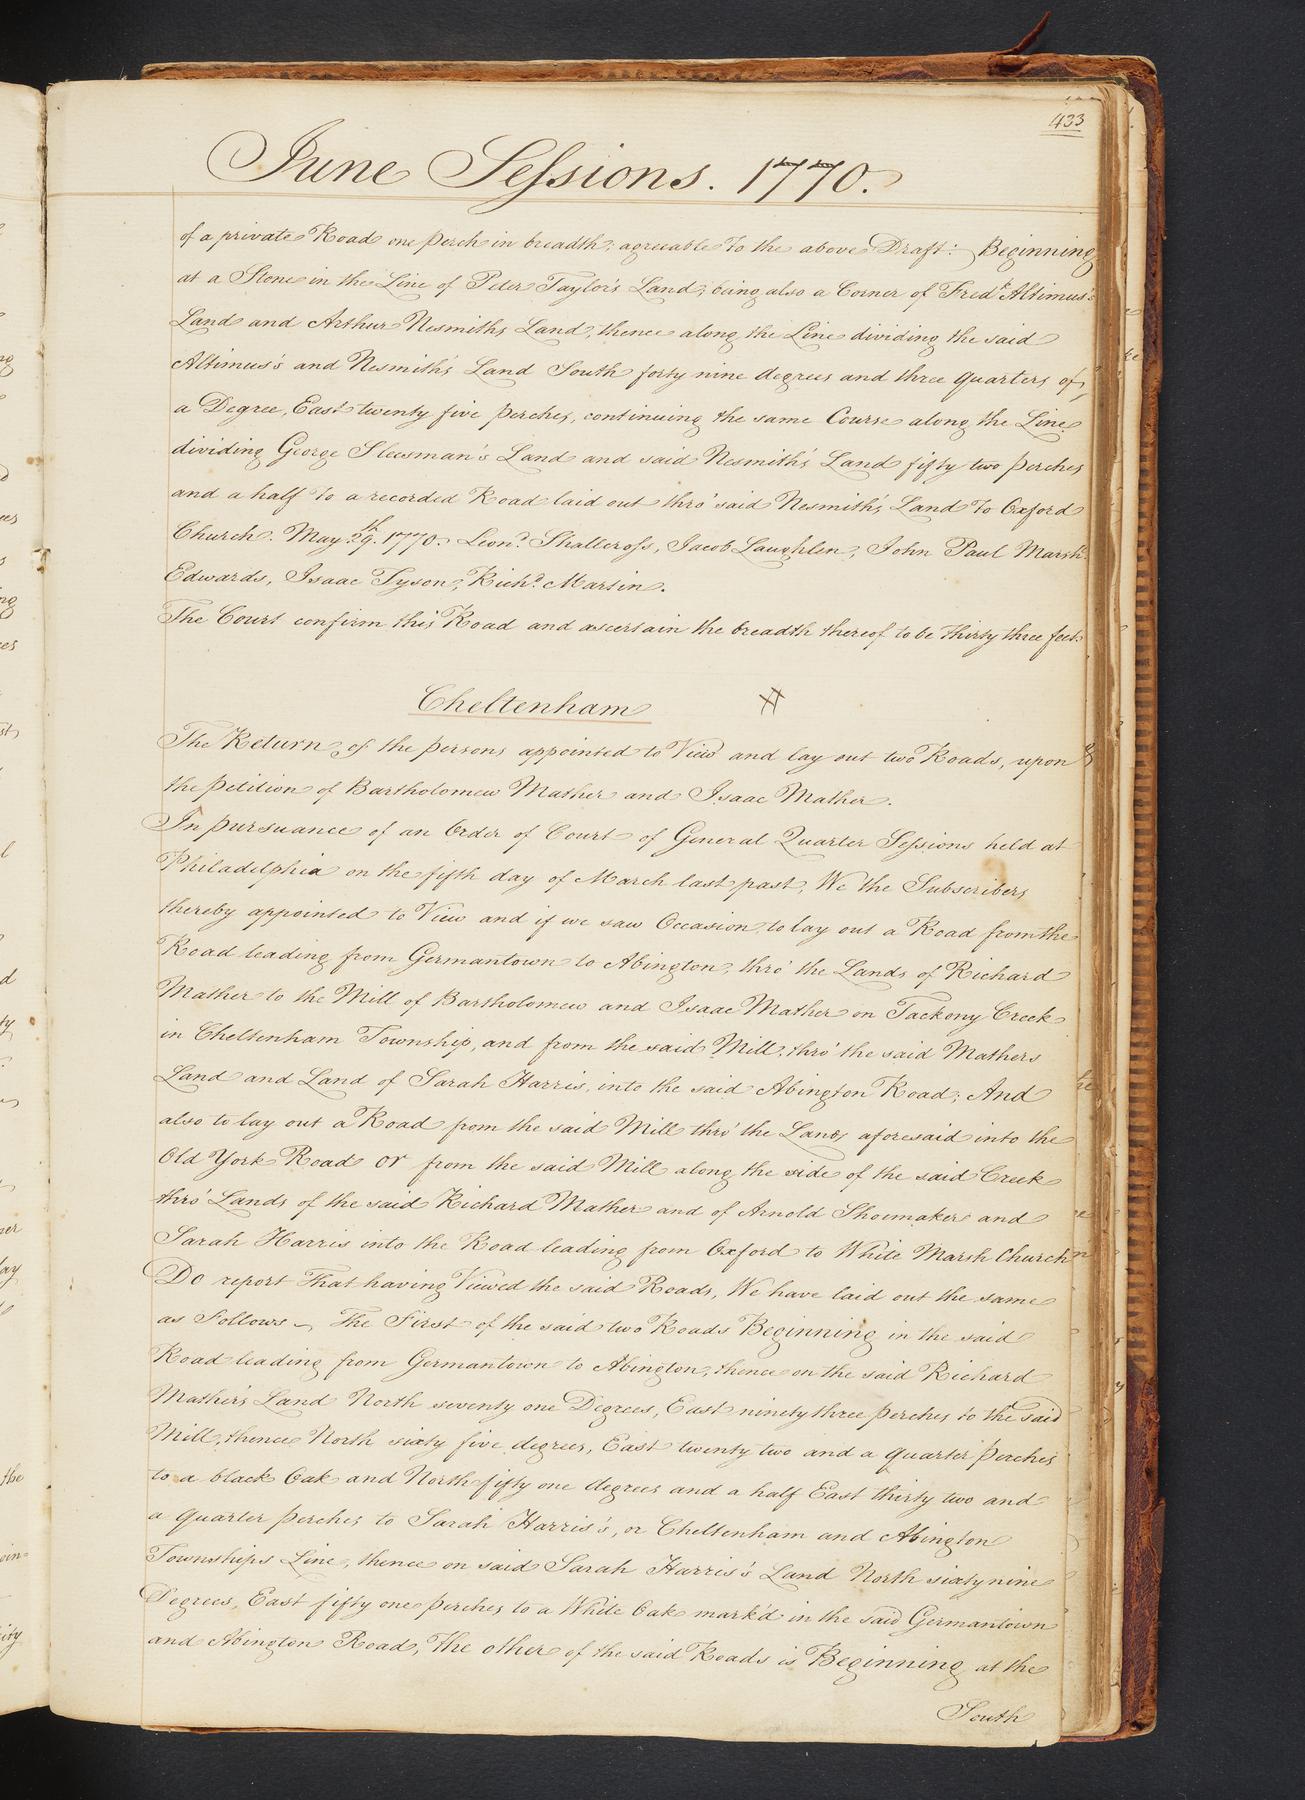 433
June Sessions. 1770.
of a private Road one perch in breadth; agreeable to the above Draft: Beginning
at a Stone in the Line of Peter Taylor's Land; being also a Corner of Fredk Altimus's
Land and Arthur Nesmiths Land, thence along the Line dividing the said
Altimus's and Nesmith's Land South forty nine degrees and three quarters of
a Degree, East twenty five perches, continuing the same Course along the Line
dividing George Sleesman's Land and said Nesmith's Land fifty two perches
and a half to a recorded Road laid out thro' said Nesmith's Land to Oxford
Church. May 29th. 1770. Leond. Shallcross, Jacob Laughlen, John Paul Marsh.
Edwards, Isaac Tyson, Richd. Martin.
The Court confirm this Road and ascertain the breadth thereof to be thirty three feet.
Cheltenham
The Return of the persons appointed to View and lay out two Roads, upon
the petition of Bartholomew Mather and Isaac Mather.
In pursuance of an Order of Court of General Quarter Sessions held at
Philadelphia on the fifth day of March last past, We the Subscribers
thereby appointed to View and if we saw Occasion to lay out a Road from the
Road leading from Germantown to Abington, thro' the Lands of Richard
Mather to the Mill of Bartholomew and Isaac Mather on Tackony Creek
in Cheltenham Township, and from the said Mill, thro' the said Mathers
Land and Land of Sarah Harris, into the said Abington Road; And
also to lay out a Road from the said Mill thro' the Lands aforesaid into the
Old York Road or from the said Mill along the side of the said Creek
thro' Lands of the said Richard Mather and of Arnold Shoemaker and
Sarah Harris into the Road leading from Oxford to White Marsh Church
Do report That having Viewed the said Roads, We have laid out the same
as Follows – The First of the said two Roads Beginning in the said
Road leading from Germantown to Abington, thence on the said Richard
Mather's Land North seventy one Degrees, East ninety three perches to the said
Mill, thence North sixty five degrees, East twenty two and a quarter perches
to a black Oak and North fifty one degrees and a half East thirty two and
a quarter perches to Sarah Harris's, or Cheltenham and Abington
Townships Line, thence on said Sarah Harris's Land North sixty nine
Degrees, East fifty one perches to a White Oak mark'd in the said Germantown
and Abington Road, The other of the said Roads is Beginning at the
South